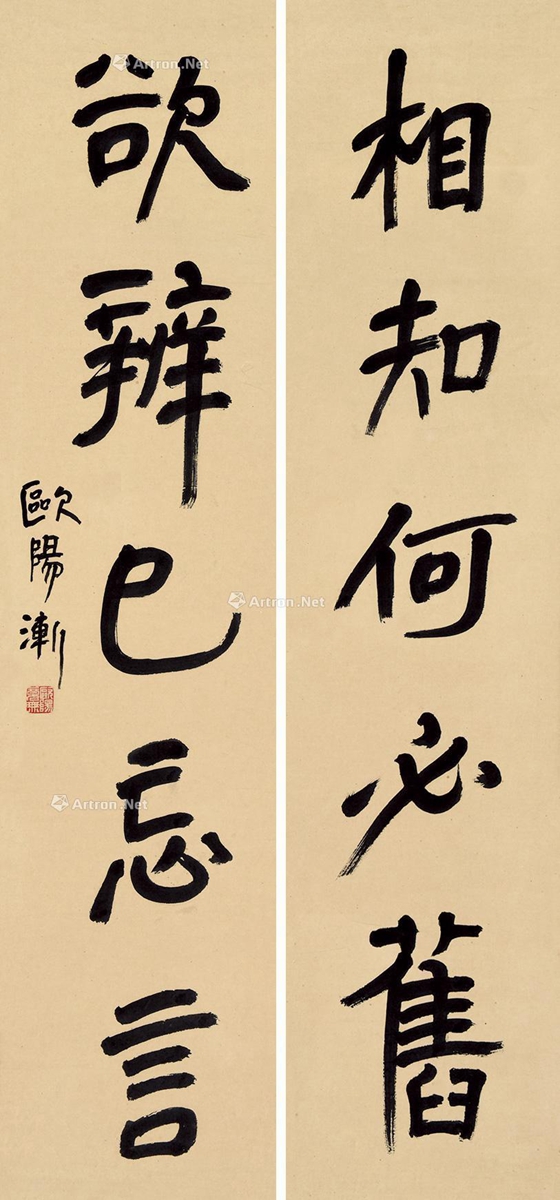 相知何必舊
欲辨已忘言
歐陽漸
Artron.Net
Artron.Net
Artron.Net